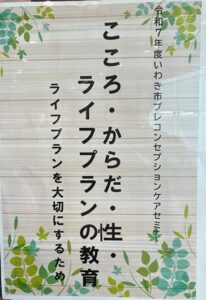 令和７年度いわき市プレコンセプションケアセミナー
こころ・からだ・性・
ライフプランの教育
ライフプランを大切にするため